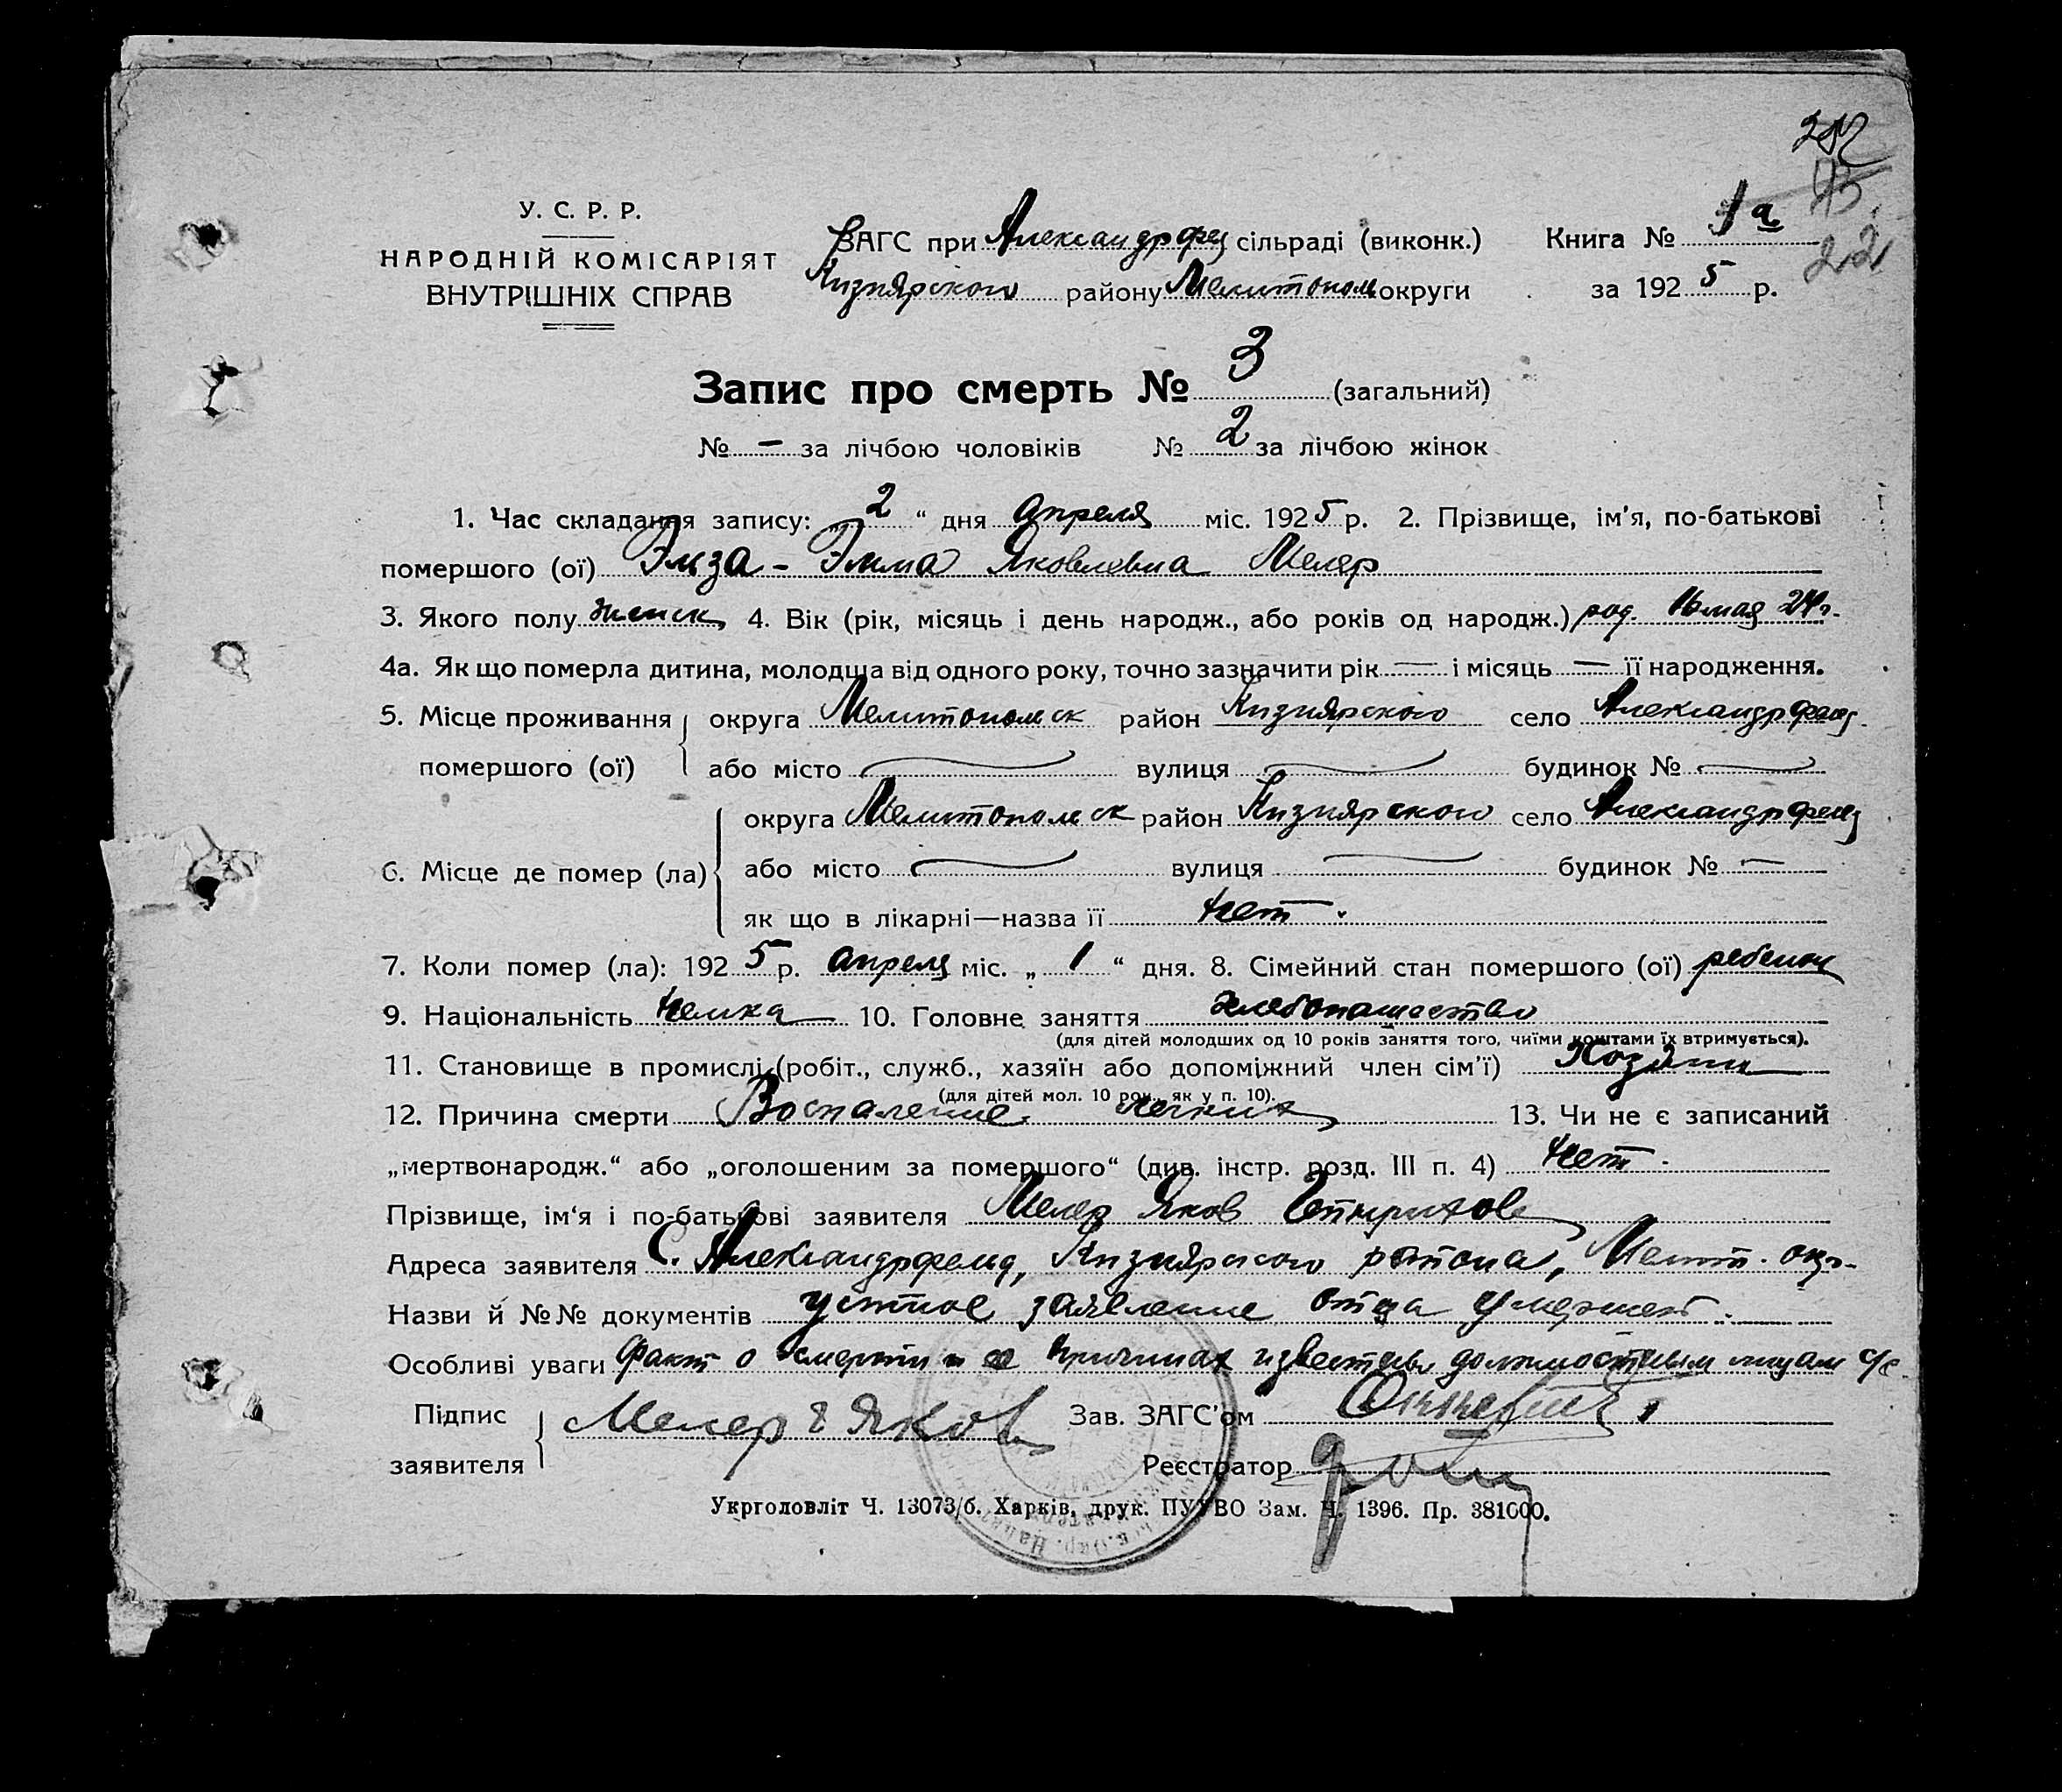 282
У. С. Р. Р.
НАРОДНІЙ КОМІСАРІЯТ
ВНУТРІШНІХ СПРАВ
ЗАГС при Александрфел сільраді (виконк.)
Кизиярского району Мелитопол округи
Книга № 1а
за 1925 р.
22
Запис про смерть № 3 (загальний)
№ — за лічбою чоловіків № 2 за лічбою жінок
1. Час складання запису: „2“ дня апреля міс. 1925 р. 2. Прізвище, ім'я, по-батькові
помершого (ої) Эльза - Эмма Яковлевна Мелер
3. Якого полу женск 4. Вік (рік, місяць і день народж., або років од народж.) род. 16 мая 24 г.
4а. Як що померла дитина, молодща від одного року, точно зазначити рік — і місяць — її народження.
5. Місце проживання помершого (ої) округа Мелитопольск район Кизиярского село Александрфельд
або місто — вулиця — будинок № —
6. Місце де помер (ла) округа Мелитопольск район Кизиярского село Александрфельд
або місто — вулиця — будинок № —
як що в лікарні—назва її нет.
7. Коли помер (ла): 1925 р. апреля міс. „1“ дня. 8. Сімейний стан помершого (ої) ребенок
9. Національність немка 10. Головне заняття хлебопашество
(для дітей молодших од 10 років заняття того, чиїми коштами їх втримується).
11. Становище в промислі (робіт., служб., хазяїн або допоміжний член сім'ї) Хозяин
(для дітей мол. 10 рок., як у п. 10).
12. Причина смерти Воспаление легких 13. Чи не є записаний
„мертвонародж.“ або „оголошеним за помершого“ (див. інстр. розд. III п. 4) нет.
Прізвище, ім'я і по-батькові заявителя Мелер Яков Генрихов
Адреса заявителя С. Александрфельд, Кизиярского района, Мелит. окр.
Назви й №№ документів устное заявление отца умершей.
Особливі уваги факт о смерти и ее причинах известны должностным лицам с/с
Підпис заявителя Мелер Яков Зав. ЗАГС'ом
Реєстратор
Укрголовліт Ч. 13073/б. Харків, друк. ПУУВО Зам. Ч. 1396. Пр. 381000.